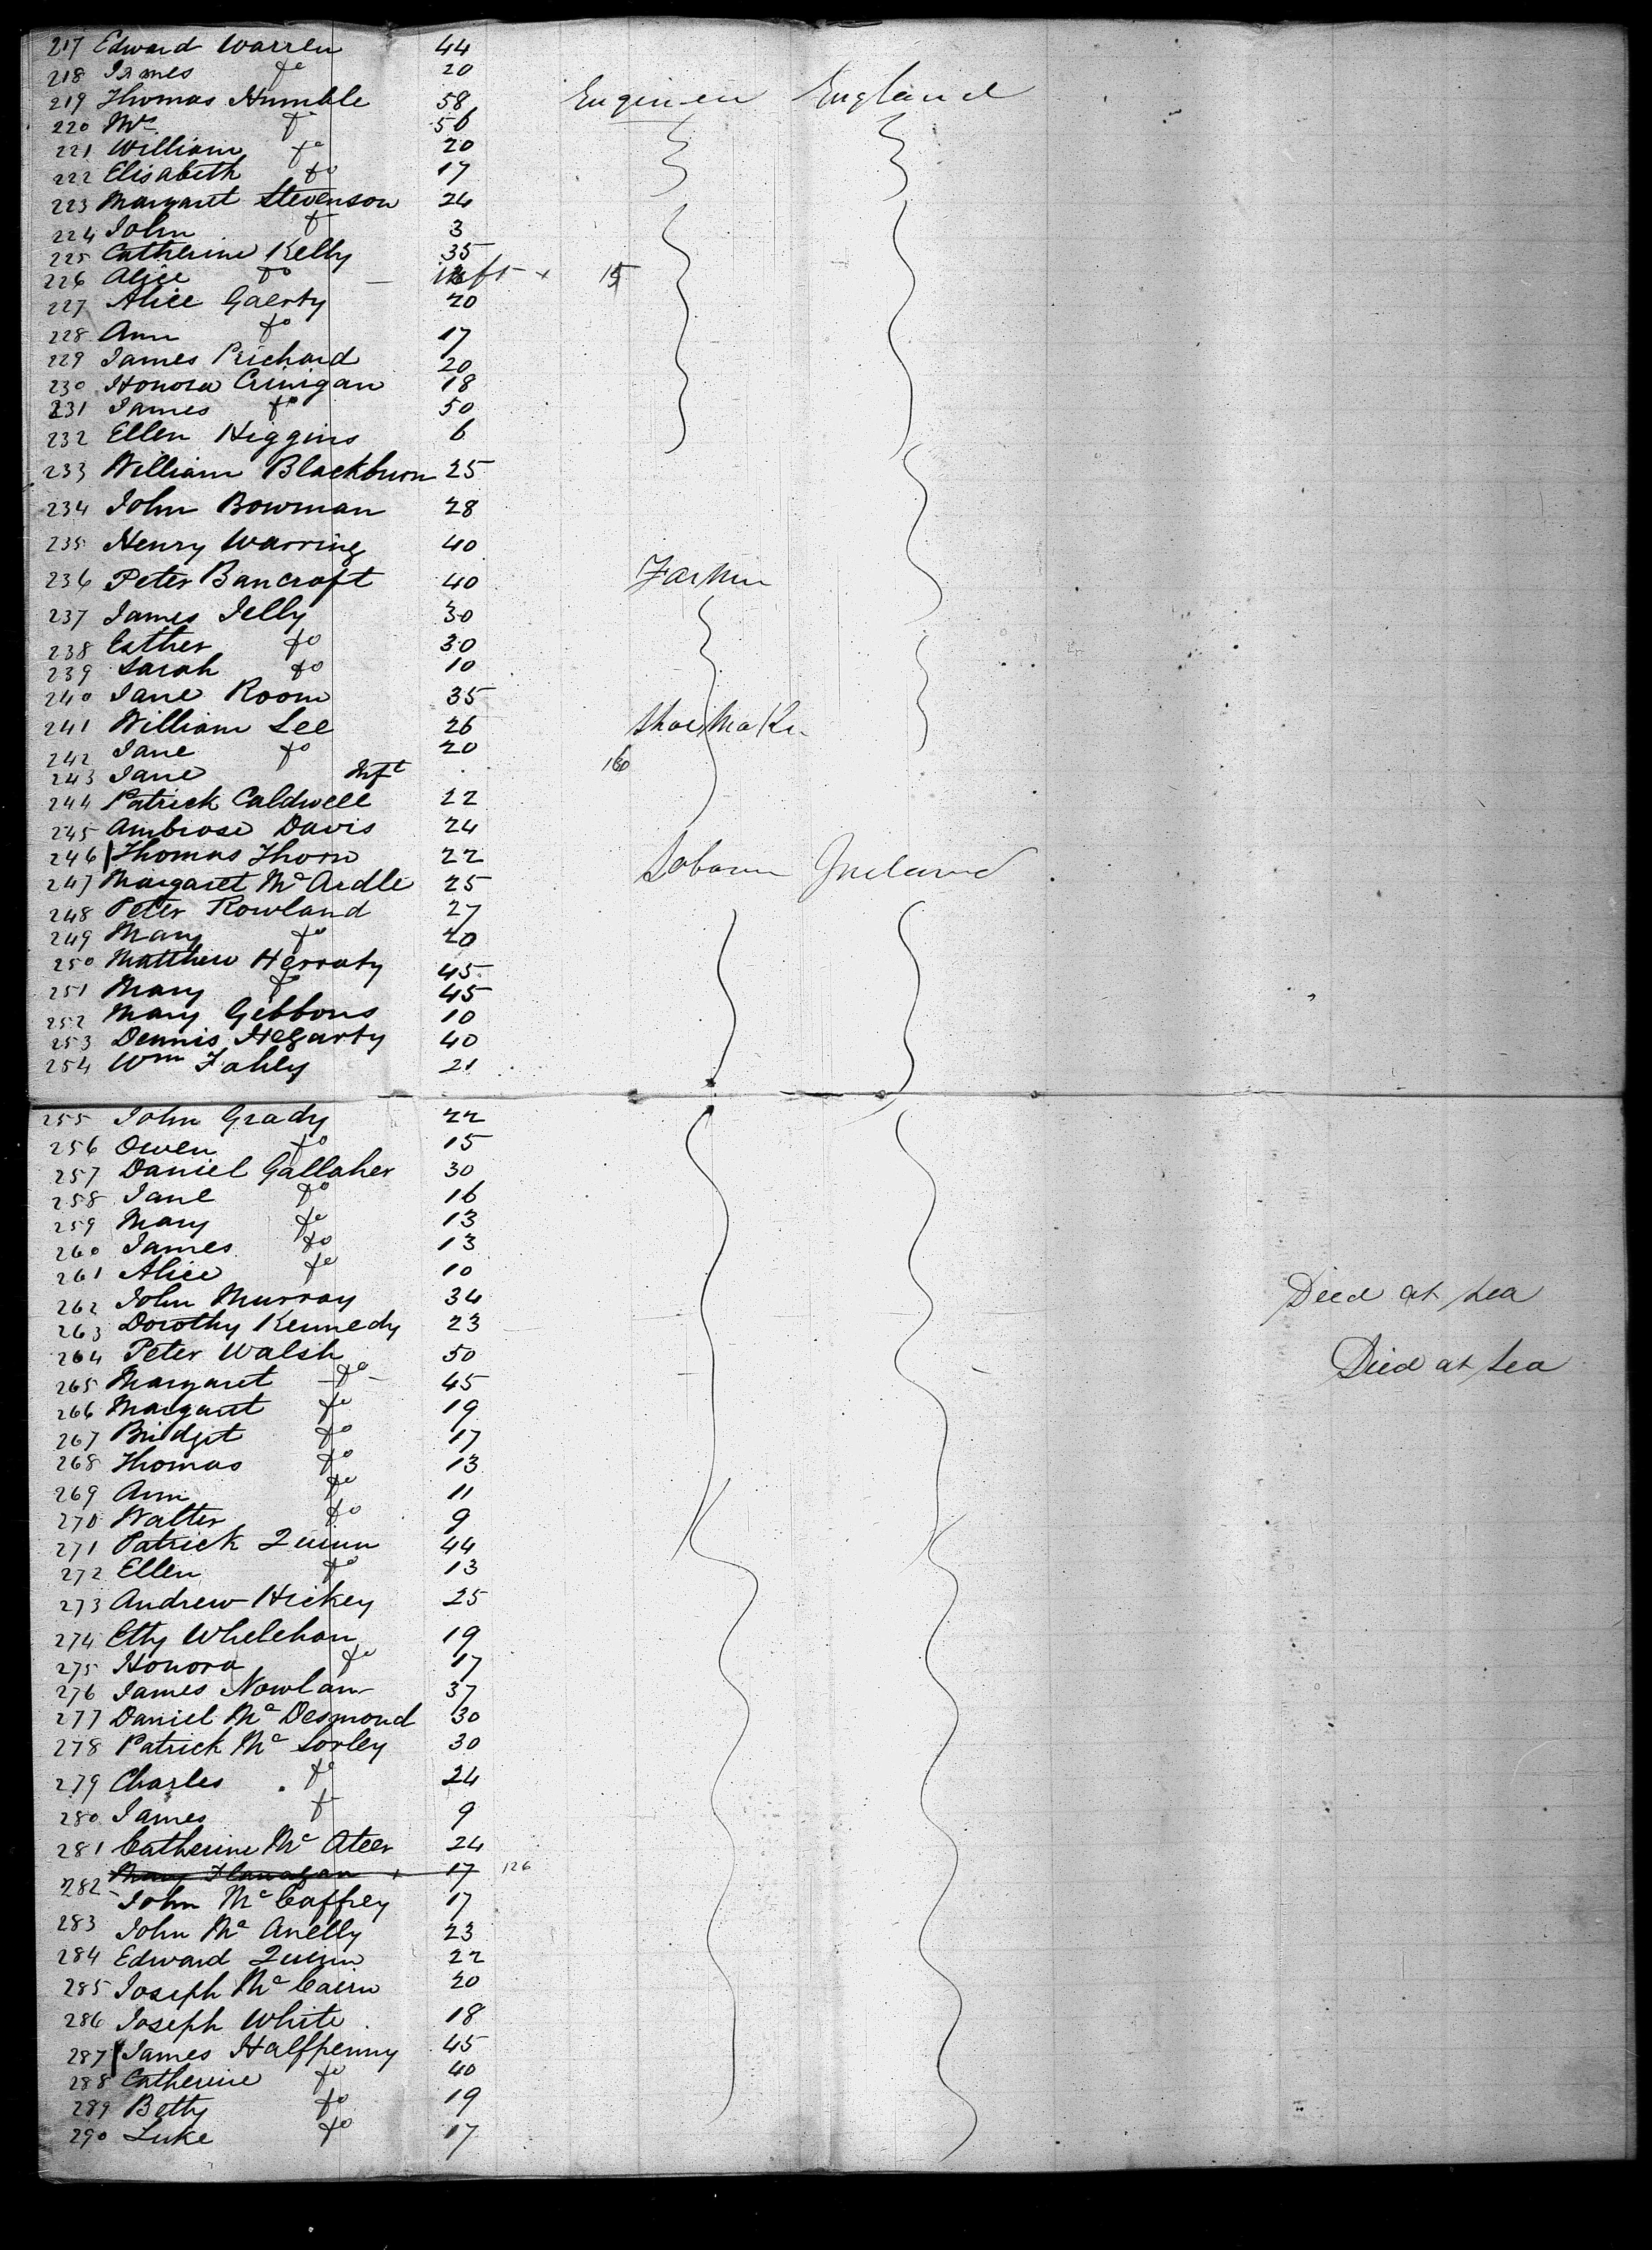 217 Edward Warren 44
218 James do 20
219 Thomas Humble 58 Engineer England
220 Mrs do 56
221 William do 20
222 Elisabeth do 17
223 Margaret Stevenson 24
224 John do 3
225 Catherine Kelly 35
226 Alice do — inft + 15
227 Alice Gaerty 20
228 Ann do 17
229 James Prichard 20
230 Honora Crinigan 18
231 James do 50
232 Ellen Higgins 6
233 William Blackburn 25
234 John Bowman 28
235 Henry Warring 40
236 Peter Bancroft 40 Farmer
237 James Jelly 30
238 Esther do 30
239 Sarah do 10
240 Jane Room 35
241 William Lee 26 Shoemaker
242 Jane do 20
243 Jane Inft 160
244 Patrick Caldwell 22
245 Ambrose Davis 24
246 Thomas Thorn 22
247 Margaret Mc Ardle 25 Laborer Ireland
248 Peter Rowland 27
249 Mary do 20
250 Matthew Herraty 45
251 Mary do 45
252 Mary Gibbons 10
253 Dennis Hegarty 40
254 Wm Fahey 21
255 John Grady 22
256 Owen do 15
257 Daniel Gallaher 30
258 Jane do 16
259 Mary do 13
260 James do 13
261 Alice do 10
262 John Murray 34 Died at Sea
263 Dorothy Kennedy 23
264 Peter Walsh 50 Died at Sea
265 Margaret do 45
266 Margaret do 19
267 Bridget do 17
268 Thomas do 13
269 Ann do 11
270 Walter do 9
271 Patrick Quinn 44
272 Ellen do 13
273 Andrew Hickey 25
274 Etty Whelehan 19
275 Honora do 17
276 James Nowlan 37
277 Daniel Mc Desmond 30
278 Patrick Mc Sorley 30
279 Charles do 24
280 James do 9
281 Catherine Mc Ateer 24
Mary Flanagan + 17 126
282 John Mc Caffrey 17
283 John Mc Anelly 23
284 Edward Quinn 22
285 Joseph Mc Cairn 20
286 Joseph White 18
287 James Halfpenny 45
288 Catherine do 40
289 Betty do 19
290 Luke do 17